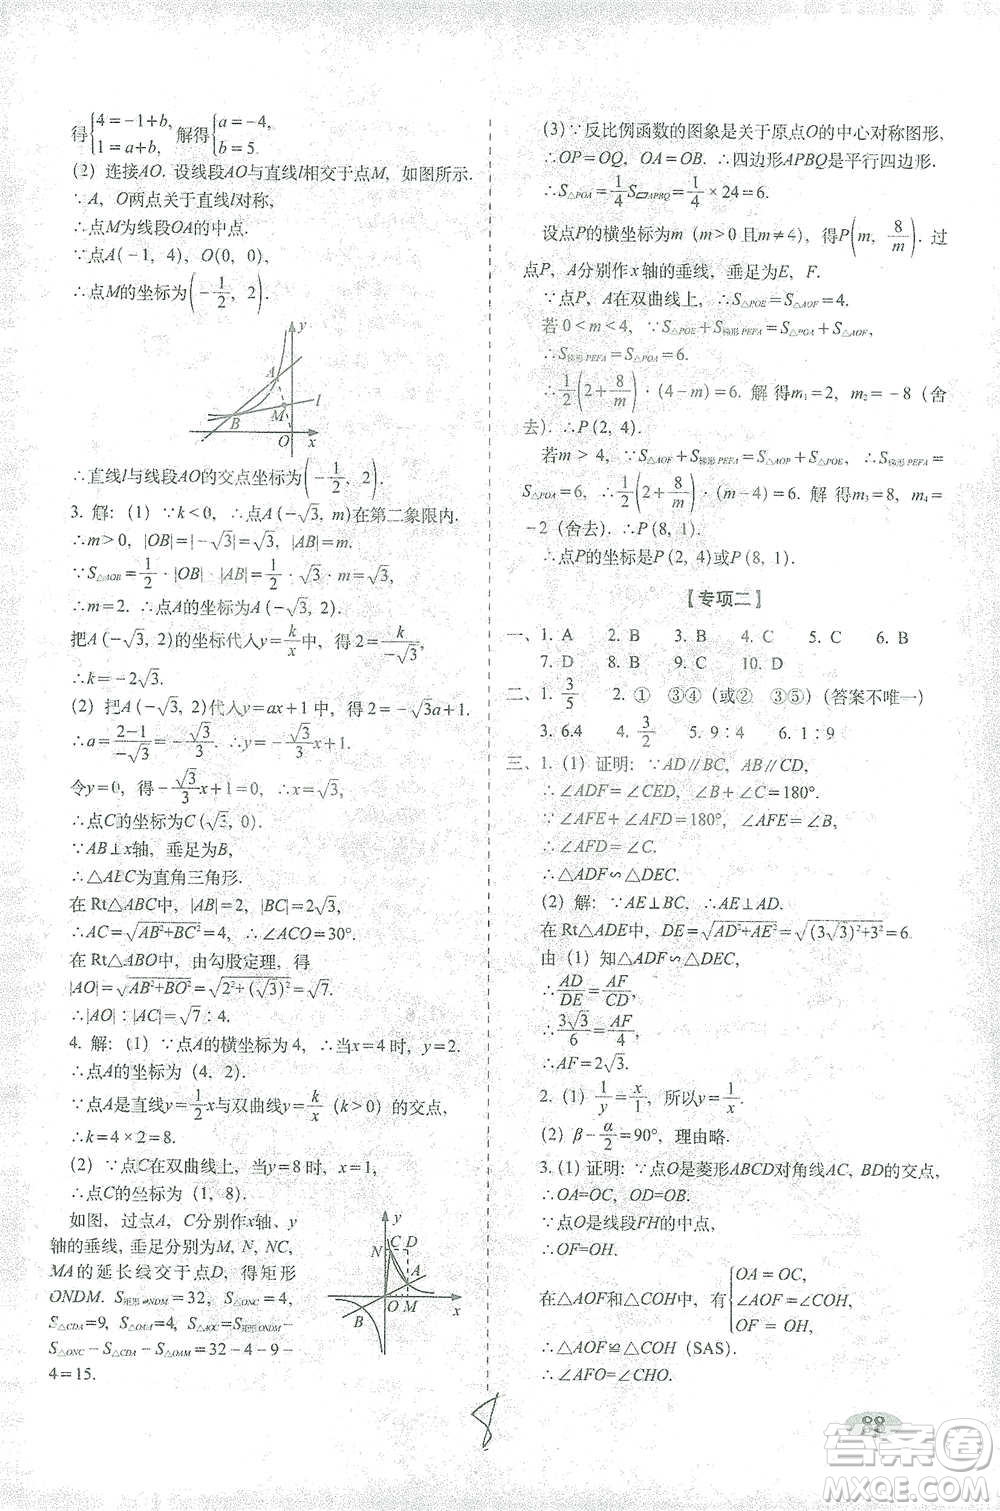 得{4=-1+b, 1=a+b, 解得{a=-4, b=5.
(2) 连接AO. 设线段AO与直线l相交于点M, 如图所示.
∵A, O两点关于直线l对称,
∴点M为线段OA的中点.
∵点A(-1, 4), O(0, 0),
∴点M的坐标为(-1/2, 2).
y
A
M
l
B
O
x
∴直线l与线段AO的交点坐标为(-1/2, 2).
3. 解: (1) ∵k<0, ∴点A(-√3, m)在第二象限内.
∴m>0, |OB|=|-√3|=√3, |AB|=m.
∵S△AOB=1/2·|OB|·|AB|=1/2×√3×m=√3.
∴m=2. ∴点A的坐标为A(-√3, 2).
把A(-√3, 2)的坐标代入y=k/x中, 得2=k/-√3,
∴k=-2√3.
(2) 把A(-√3, 2)代入y=ax+1中, 得2=-√3a+1.
∴a=2-1/-√3=-√3/3. ∴y=-√3/3x+1.
令y=0, 得-√3/3x+1=0, ∴x=√3.
∴点C的坐标为C(√3, 0).
∵AB⊥x轴, 垂足为B,
∴△ABC为直角三角形.
在Rt△ABC中, |AB|=2, |BC|=2√3,
∴AC=√AB²+BC²=4, ∴∠ACO=30°.
在Rt△ABO中, 由勾股定理, 得
|AO|=√AB²+BO²=√2²+(√3)²=√7.
∴|AO|∶|AC|=√7∶4.
4. 解: (1) ∵点A的横坐标为4, ∴当x=4时, y=2.
∴点A的坐标为 (4, 2).
∵点A是直线y=1/2x与双曲线y=k/x (k>0) 的交点,
∴k=4×2=8.
(2) ∵点C在双曲线上, 当y=8时, x=1.
∴点C的坐标为 (1, 8).
如图, 过点A, C分别作x轴、y
轴的垂线, 垂足分别为M, N, NC,
MA的延长线交于点D, 得矩形
ONDM. S矩形ONDM=32, S△ONC=4,
S△CDA=9, S△OAM=4, S△AOC=S矩形ONDM-
S△ONC-S△CDA-S△OAM=32-4-9-
4=15.
y
N C D
A
O M x
B
(3) ∵反比例函数的图象是关于原点O的中心对称图形,
∴OP=OQ, OA=OB. ∴四边形APBQ是平行四边形.
∴S△POA=1/4S▱APBQ=1/4×24=6.
设点P的横坐标为m (m>0且m≠4), 得P(m, 8/m). 过
点P, A分别作x轴的垂线, 垂足为E, F.
∵点P, A在双曲线上, ∴S△POE=S△AOF=4.
若0<m<4, ∵S△POE+S梯形PEFA=S△POA+S△AOF,
∴S梯形PEFA=S△POA=6.
∴1/2(2+8/m)·(4-m)=6. 解得m₁=2, m₂=-8(舍
去). ∴P(2, 4).
若m>4, ∵S△AOF+S梯形PEFA=S△AOP+S△POE, ∴S梯形PEFA=
S△POA=6, ∴1/2(2+8/m)·(m-4)=6. 解得m₃=8, m₄=
-2(舍去). ∴P(8, 1).
∴点P的坐标是P(2, 4)或P(8, 1).
【专项二】
一、1. A 2. B 3. B 4. C 5. C 6. B
7. D 8. B 9. C 10. D
二、1. 3/5 2. ① ③④ (或② ③⑤) (答案不唯一)
3. 6.4 4. 3/2 5. 9∶4 6. 1∶9
三、1. (1) 证明: ∵AD∥BC, AB∥CD,
∴∠ADF=∠CED, ∠B+∠C=180°.
∵∠AFE+∠AFD=180°, ∠AFE=∠B,
∴∠AFD=∠C.
∴△ADF∽△DEC.
(2) 解: ∵AE⊥BC, ∴AE⊥AD.
在Rt△ADE中, DE=√AD²+AE²=√(3√3)²+3²=6.
由 (1) 知△ADF∽△DEC,
∴AD/DE=AF/CD,
∴3√3/6=AF/4.
∴AF=2√3.
2. (1) 1/y=x/1, 所以y=1/x.
(2) β-α/2=90°, 理由略.
3. (1) 证明: ∵点O是菱形ABCD对角线AC, BD的交点,
∴OA=OC, OD=OB.
∵点O是线段FH的中点,
∴OF=OH.
在△AOF和△COH中, 有{OA=OC, ∠AOF=∠COH, OF=OH,
∴△AOF≌△COH (SAS).
∴∠AFO=∠CHO.
8
答案圈
MXQE.COM